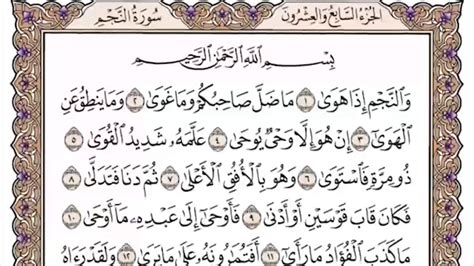 سُورَةُ النَّجْمِ الجُزْءُ السَّابِعُ وَالعِشْرُونَ
بِسْمِ اللَّهِ الرَّحْمَٰنِ الرَّحِيمِ
وَالنَّجْمِ إِذَا هَوَىٰ ١ مَا ضَلَّ صَاحِبُكُمْ وَمَا غَوَىٰ ٢ وَمَا يَنطِقُ عَنِ
الْهَوَىٰ ٣ إِنْ هُوَ إِلَّا وَحْيٌ يُوحَىٰ ٤ عَلَّمَهُ شَدِيدُ الْقُوَىٰ ٥
ذُو مِرَّةٍ فَاسْتَوَىٰ ٦ وَهُوَ بِالْأُفُقِ الْأَعْلَىٰ ٧ ثُمَّ دَنَا فَتَدَلَّىٰ ٨
فَكَانَ قَابَ قَوْسَيْنِ أَوْ أَدْنَىٰ ٩ فَأَوْحَىٰ إِلَىٰ عَبْدِهِ مَا أَوْحَىٰ ١٠
مَا كَذَبَ الْفُؤَادُ مَا رَأَىٰ ١١ أَفَتُمَارُونَهُ عَلَىٰ مَا يَرَىٰ ١٢ وَلَقَدْ رَءَاهُ